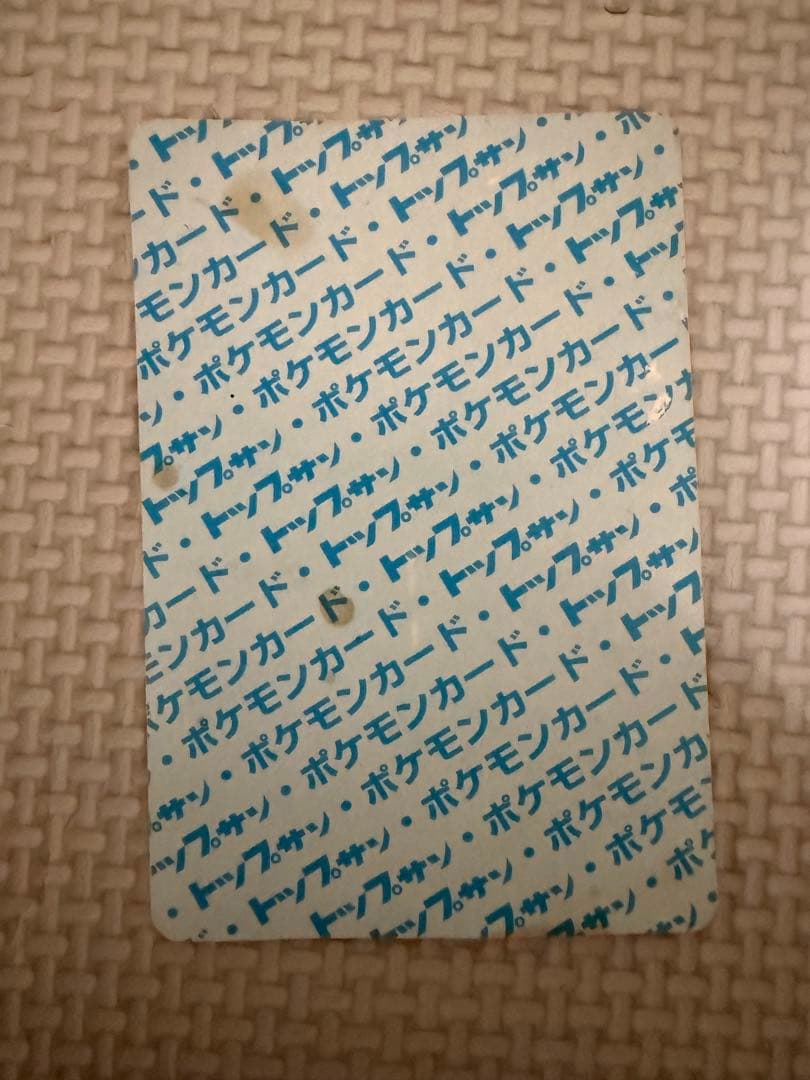 トッ
ード・トップ
カード・トップサ
モンカード・トップサン
ポケモンカード・トップサン・
ン・ポケモンカード・トップサン・ポ
プサン・ポケモンカード・トップサン・
トップサン・ポケモンカード・トップサ
ド・トップサン・ポケモンカード・トップ
カード・トップサン・ポケモンカード・
モンカード・トップサン・ポケモンカー
ケモンカード・トップサン・ポケモンカ
・ポケモンカード・トップサン・ポケモ
サン・ポケモンカード・トップサン・ポ
ップサン・ポケモンカード・トップサン
・トップサン・ポケモンカード・トップ
トップサン・ポケモンカード・ト
トップサン・ポケモンカード
トップサン・ポケモンカ
プサン・ポケモン
サン・ポケ